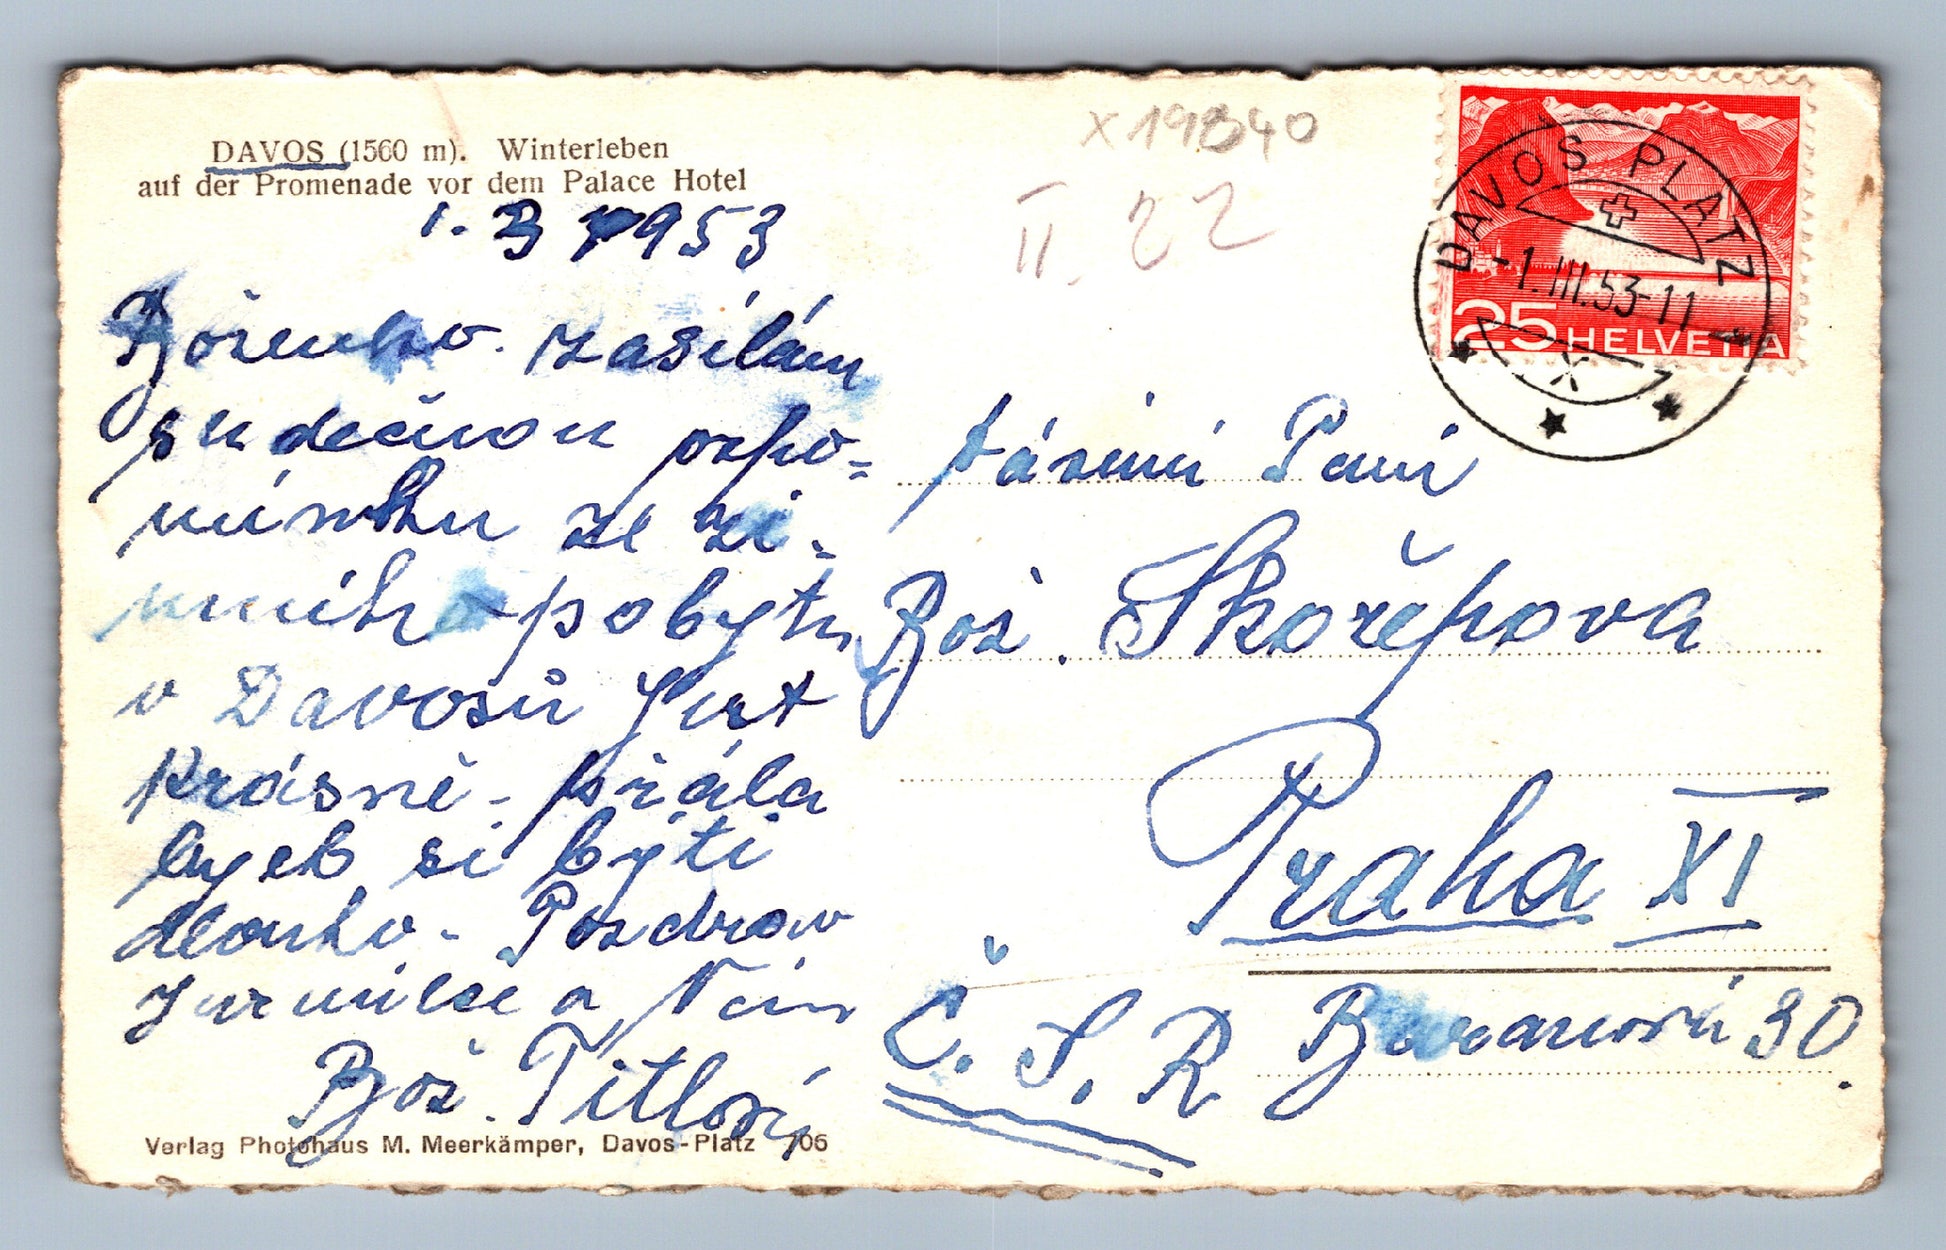 DAVOS (1560 m). Winterleben
auf der Promenade vor dem Palace Hotel
1. 3 1953
Boženko. Zasílám
srdečnou vzpo=
mínku ze zi-
mního pobytu
v Davosů jest
krásně - přála
bych si býti
dlouho. Pozdrav
Jarmilce a Vám
Bož. Titlová
Verlag Photohaus M. Meerkämper, Davos-Platz 706
X 19840
II. 22
DAVOS PLATZ
-1.III.53-11
25 HELVETIA
Paní
Bož. Skořepova
Praha XI
Č. S. R
30.